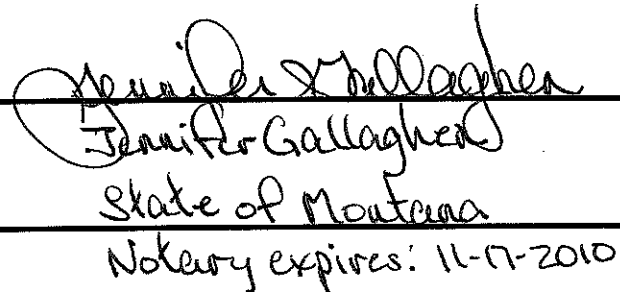 Jennifer Gallagher
Jennifer Gallagher
State of Montana
Notary expires: 11-17-2010